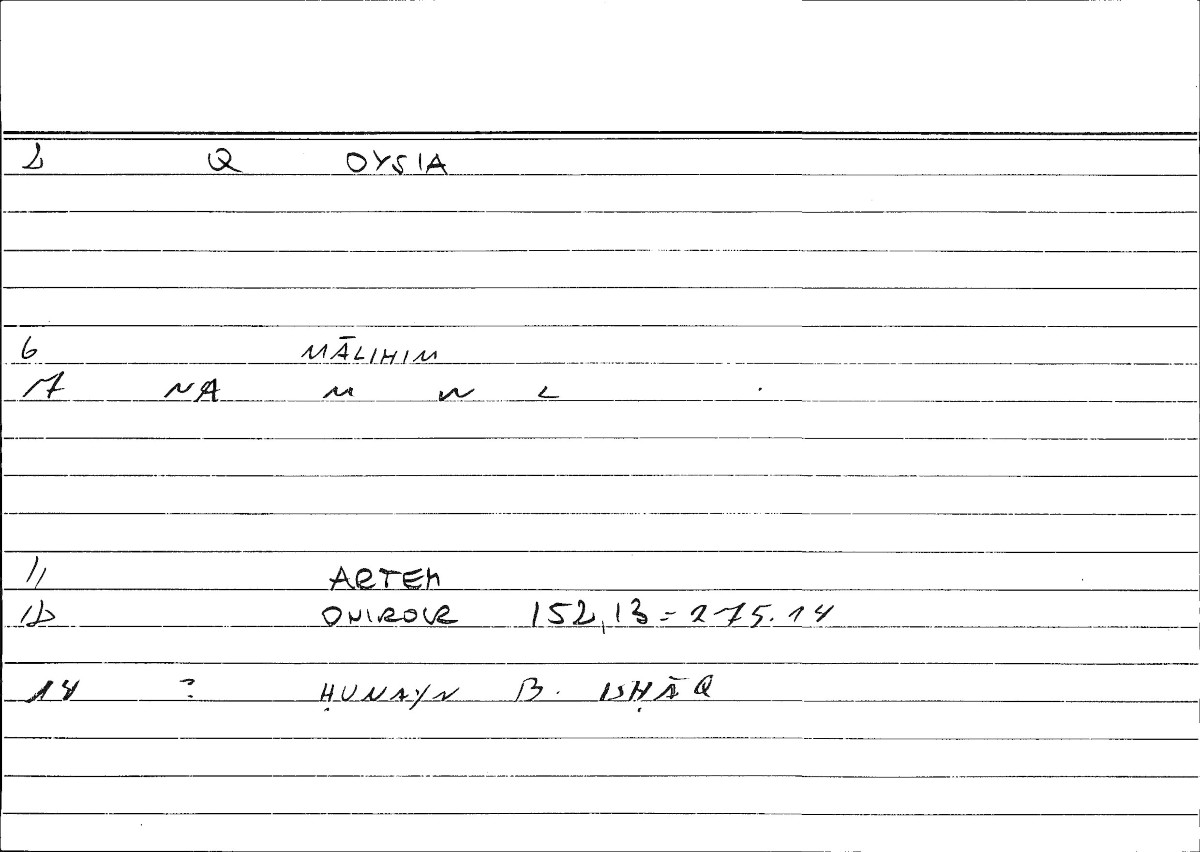 2 Q OYSIA
6 MĀLIHIM
17 NA M W L
11 ARTEM
12 ONIROCR 152,13 = 275.14
14 ? ḤUNAYN B. ISḤĀQ